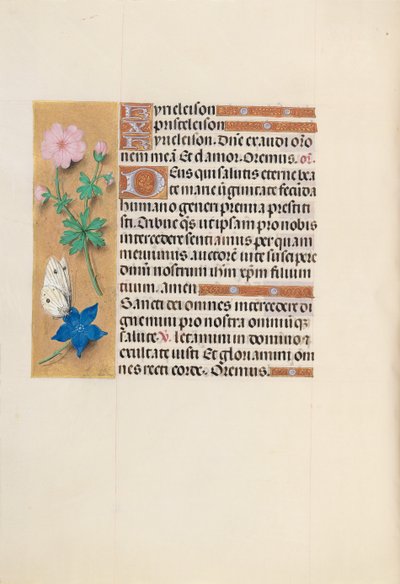 Kyrieleison
Xpristeleison
Kyrieleison. Dne exaudi oro
nem meā Et clamor. Oremus. or̄.
Deus qui salutis eterne bea
te marie v̄ginitate fecūda
humano generi premia prestiti
sti. Tribue q̄s ut ipsam pro nobis
intercedere sentiamus per quam
meruimus auctorē vite suscipere
dn̄m nostrum ihm̄ xp̄m filium
tuum. amen
Sancti dei omnes intercedere di
gnemini pro nostra omniūq̄
salute. V. letamini in domino &
exultate iusti Et gloriamini om
nes recti corde. Oremus.